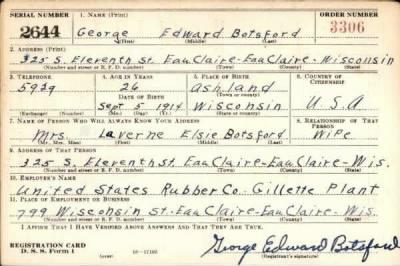 SERIAL NUMBER 1. NAME (Print) ORDER NUMBER
2644 George Edward Botsford 3306
(First) (Middle) (Last)
2. ADDRESS (Print)
325 S. Eleventh St. Eau Claire-Eau Claire-Wisconsin
(Number and street or R. F. D. number) (Town) (County) (State)
3. TELEPHONE 4. AGE IN YEARS 5. PLACE OF BIRTH 6. COUNTRY OF CITIZENSHIP
5929 26 Ashland
DATE OF BIRTH (Town or county)
Sept 5 1914 Wisconsin U.S.A
(Exchange) (Number) (Mo.) (Day) (Yr.) (State or country)
7. NAME OF PERSON WHO WILL ALWAYS KNOW YOUR ADDRESS 8. RELATIONSHIP OF THAT PERSON
Mrs. Laverne Elsie Botsford Wife
(Mr., Mrs., Miss) (First) (Middle) (Last)
9. ADDRESS OF THAT PERSON
325 S. Eleventh St. Eau Claire-Eau Claire-Wis.
(Number and street or R. F. D. number) (Town) (County) (State)
10. EMPLOYER'S NAME
United States Rubber Co. Gillette Plant
11. PLACE OF EMPLOYMENT OR BUSINESS
799 Wisconsin St.-Eau Claire-Eau Claire-Wis.
(Number and street or R. F. D. number) (Town) (County) (State)
I AFFIRM THAT I HAVE VERIFIED ABOVE ANSWERS AND THAT THEY ARE TRUE.
REGISTRATION CARD
D. S. S. Form 1 (over) 16-17105
George Edward Botsford